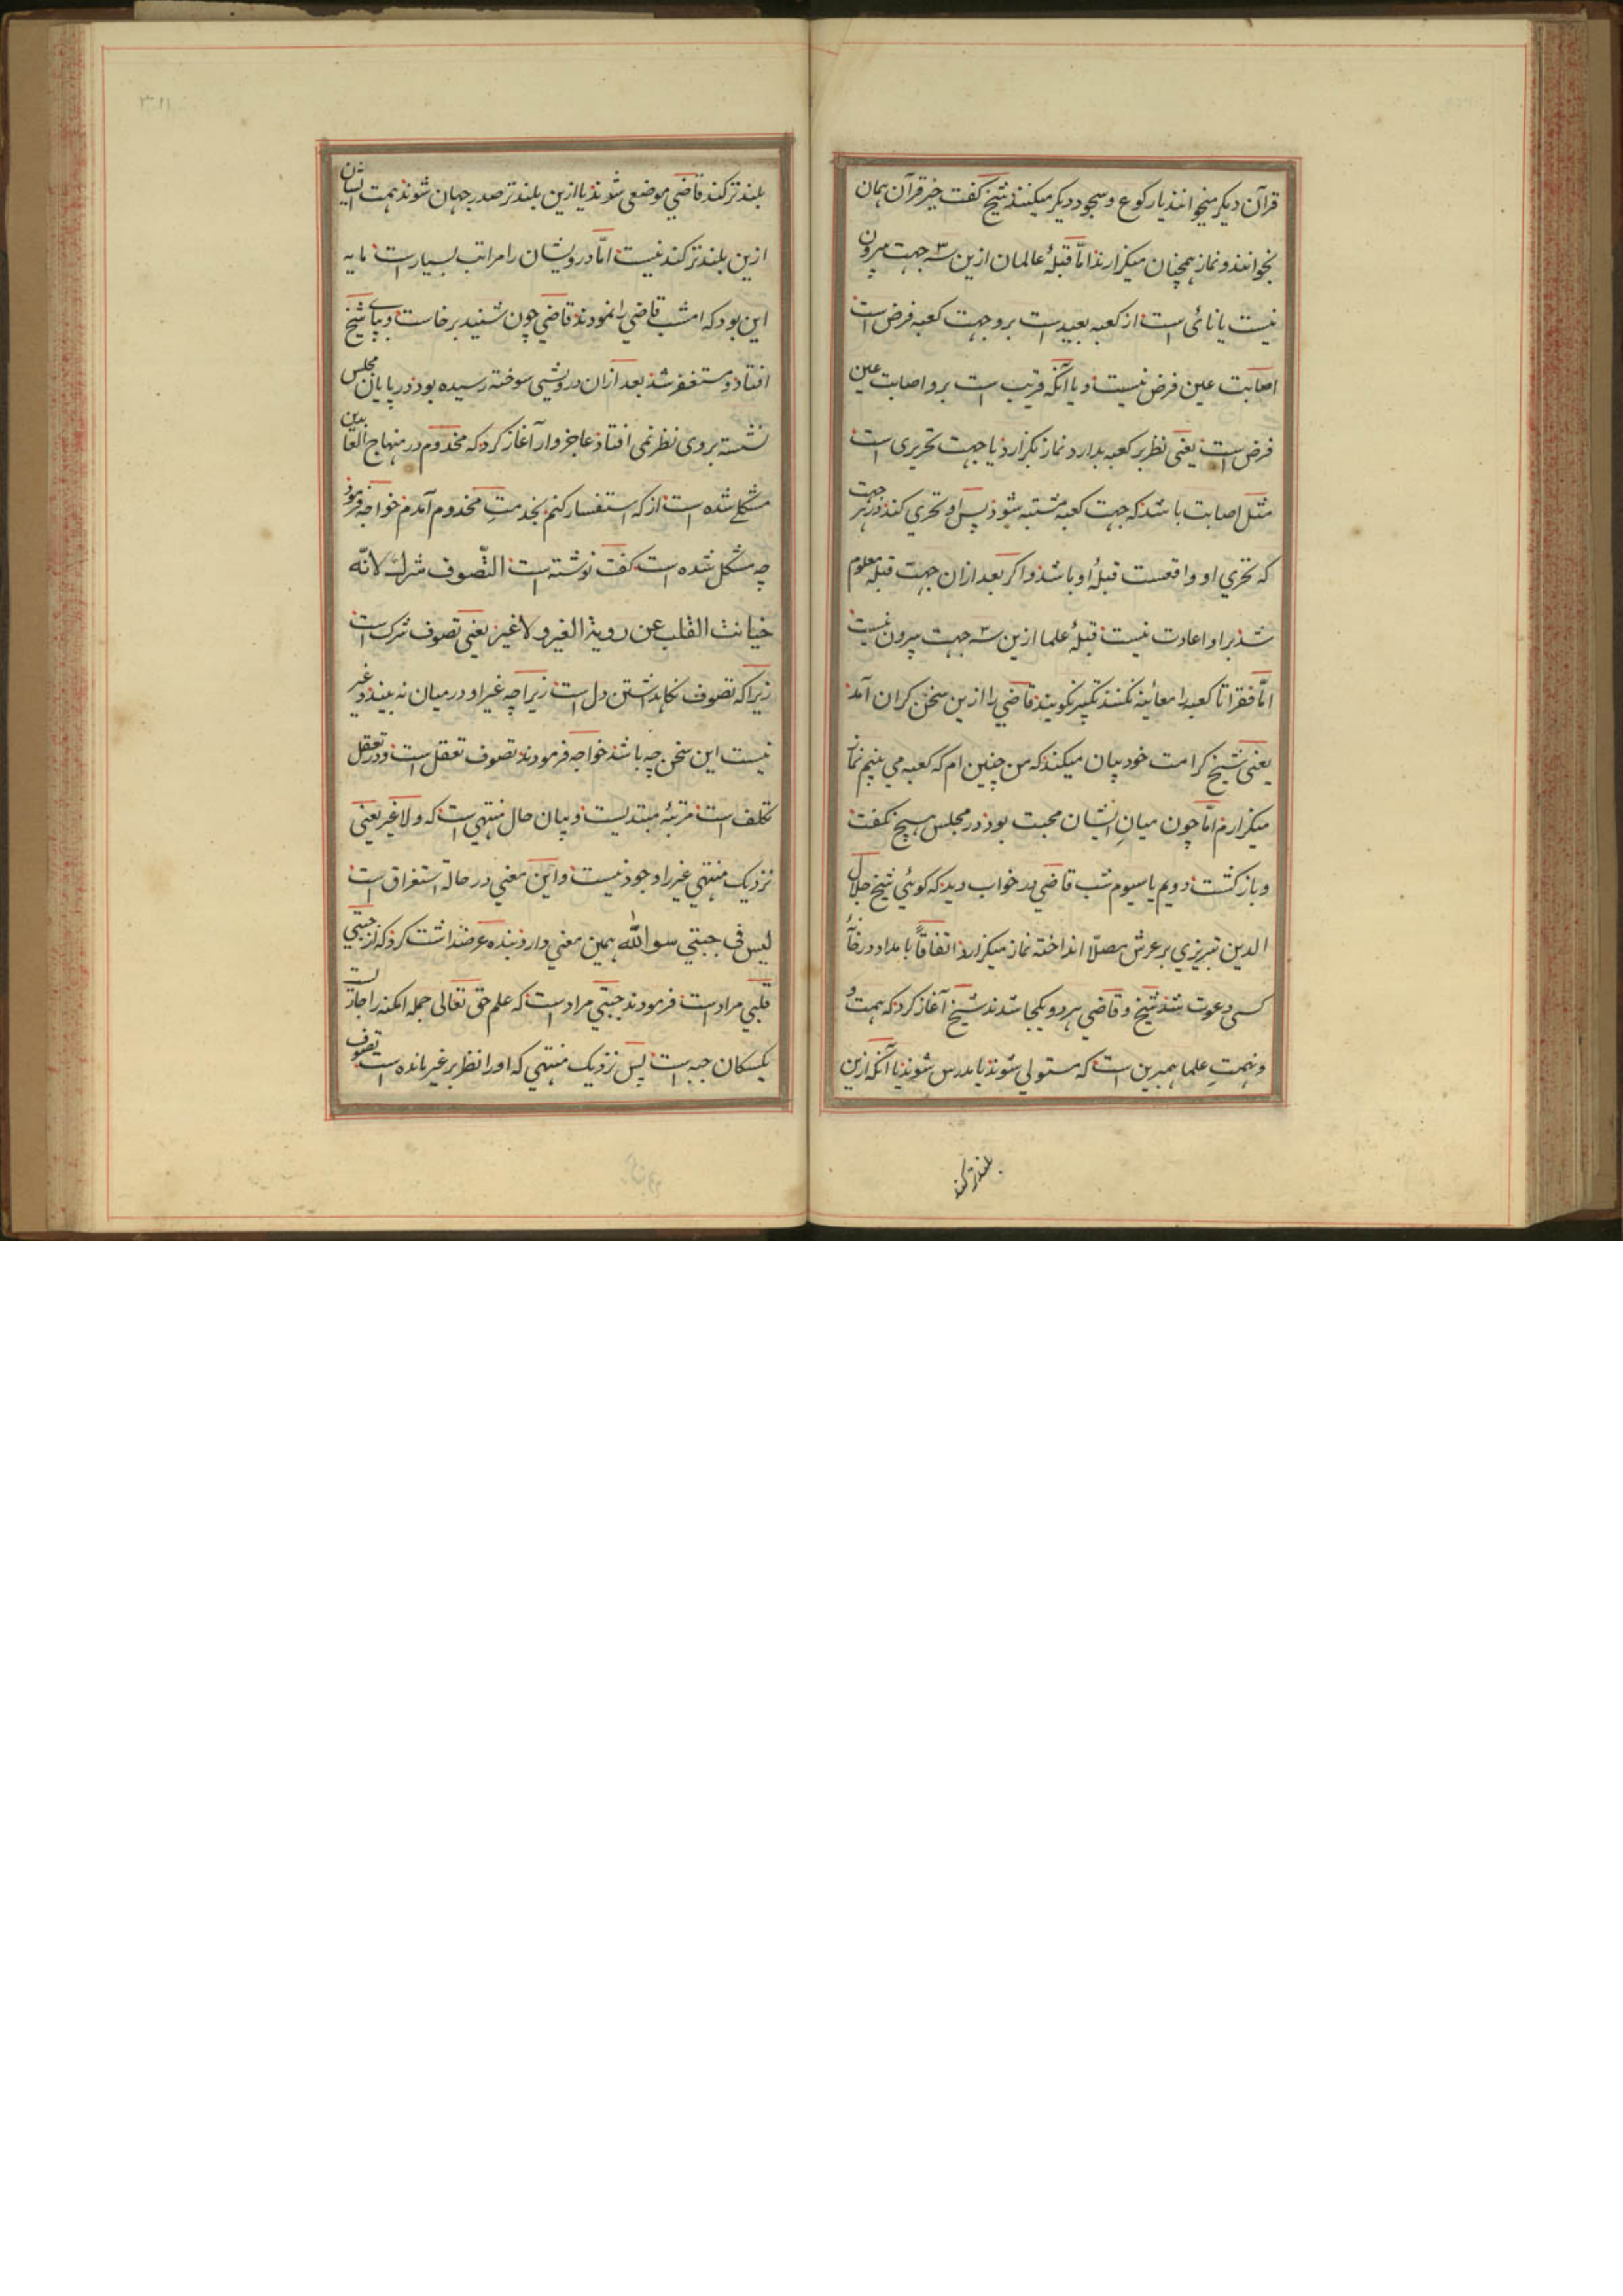 قرآن دیکر میخوانند یا رکوع و سجود دیکر میکنند شیخ کفت خیر قرآن همان
بخوانند و نماز همچنان میکزارند امّا قبلهٔ عالمان ازین سه جهت بیرون
نیست یا نائی است از کعبه بعید است برو جهت کعبه فرض است
اصابت عین فرض نیست و یا آنکه قریب است برو اصابت عین
فرض است یعنی نظر بر کعبه بدارد نماز بکزارد یا جهت تحریری است
مثل اصابت باشد که جهت کعبه مشتبه شود پس او تحری کند در هر جهت
که تحری او واقعست قبلهٔ او باشد و اکر بعد ازان جهت قبله معلوم
شد برو اعادت نیست قبلهٔ علما ازین سه جهت بیرون نیست
امّا فقرا تا کعبه را معائنه نکنند تکبیر نکویند قاضی را ازین سخن کران آمد
یعنی شیخ کرامت خود بیان میکند که من چنین ام که کعبه می بینم نماز
میکزارم امّا چون میانِ ایشان محبت بود در مجلس هیچ نکفت
و باز کشت دویم یا سیوم شب قاضی در خواب دید که کوئی شیخ جلال
الدین تبریزی بر عرش مصلّا انداخته نماز میکزارد اتفاقاً بامداد در خانهٔ
کسی دعوت شد شیخ و قاضی هر دو یکجا شدند شیخ آغاز کرد که همت و
و نهمتِ علما همبرین است که متولی شوند یا مدرس شوند یا آنکه ازین
بلندتر کند
بلندتر کند قاضی موضعی شوند یا ازین بلندتر صدر جهان شوند همت ایشان
ازین بلندتر کند نیست امّا درویشان را مراتب بسیار است مایه
این بود که امشب قاضی را نمودند قاضی چون شنید برخاست و بپای شیخ
افتاد و مستغفر شد بعد ازان درویشی سوخته رسیده بود در پایان مجلس
نشسته بر وی نظر نمی افتاد عاجزوار آغاز کرد که مخدوم در منهاج العابدین
مشکلے شده است از که استفسار کنم بخدمتِ مخدوم آمدم خواجه فرمود
چه مشکل شده است کفت نوشته است التّصوف شرك لانّه
خیانت القلب عن رویة الغیر و لا غیر یعنی تصوف شرک است
زیرا که تصوف نکاهداشتن دل است زیراچه غیر او در میان نه بیند و غیر
نیست این سخن چه باشد خواجه فرمودند تصوف تعقل است و در تعقل
تکلف است مرتبهٔ مبتدیست و بیان حال منتهی است که و لا غیر یعنی
نزدیک منتهی غیر را وجود نیست و این معنی در حالة استغراق است
لیس فی جبتي سوا اللّه همین معنی دارد بنده عرضداشت کرد که از جبتي
قلبي مراد است فرمودند جبتي مراد است که علم حق تعالی جمله امکنه را جائز است
یکسکان جبه است پس نزدیک منتهی که او را نظر بر غیر مانده است تصوف